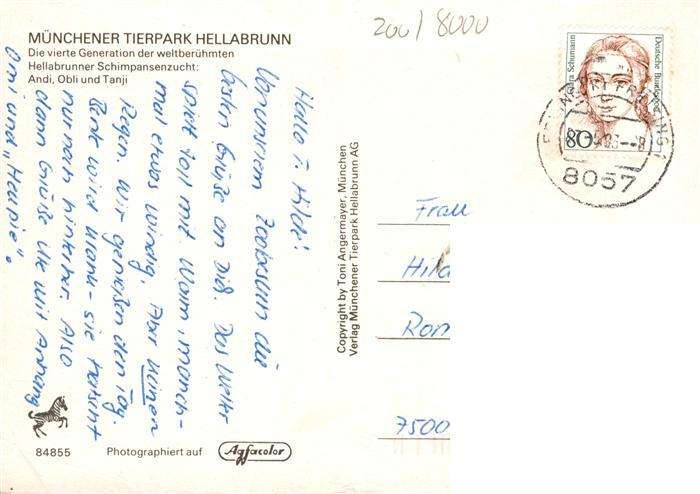 MÜNCHENER TIERPARK HELLABRUNN
Die vierte Generation der weltberühmten
Hellabrunner Schimpansenzucht:
Andi, Obli und Tanji
Hallo
Hilde!
Von unserem Zoobesuch die
besten Grüße an Dich. Das Wetter
spielt toll mit. Warm, manch-
mal etwas windig. Aber keinen
Regen. Wir genießen den Tag.
wird
- sie
nur noch hinterher. Also
dann Grüße mit Anhang
Omi und „
84855
Photographiert auf
Agfacolor
Copyright by Toni Angermayer, München
Verlag Münchener Tierpark Hellabrunn AG
200 / 8000
Clara Schumann
Deutsche Bundespost
80
8057
Frau
Hild
Ron
7500